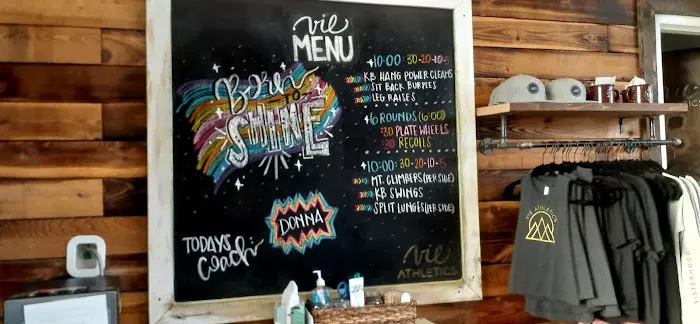 vie
MENU
Born
to
SHINE
10:00: 30-20-10-
KB HANG POWER CLEANS
SIT BACK BURPEES
LEG RAISES
6 ROUNDS (6:00)
:30 PLATE WHEELS
:30 RECOILS
10:00: 30-20-10-5
MT. CLIMBERS (PER SIDE)
KB SWINGS
SPLIT LUNGES (PER SIDE)
TODAYS
Coach
DONNA
vie
ATHLETICS
VIE ATHLETICS